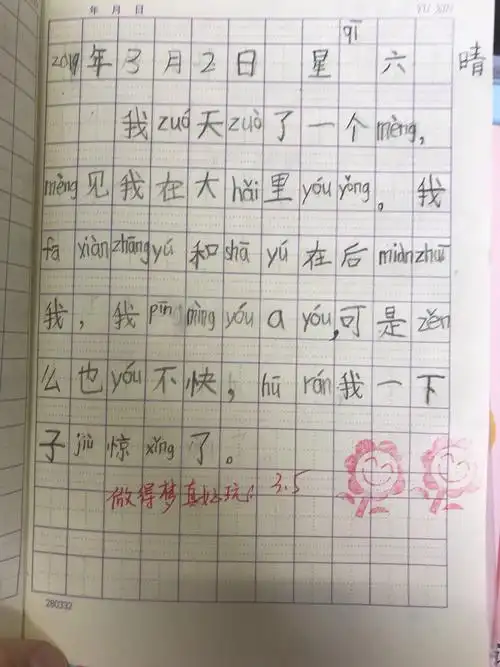 年 月 日
2019年3月2日 星qī六 晴
我zuó天zuò了一个mèng，
mèng见我在大hǎi里yóu yǒng。我
fā xiàn zhāng yú和shā yú在后miàn zhuī
我，我pīn mìng yóu a yóu，可是zěn
么也yóu不快，hū rán我一下
子jiù惊xǐng了。
做得梦真好玩！ 3.5
280332